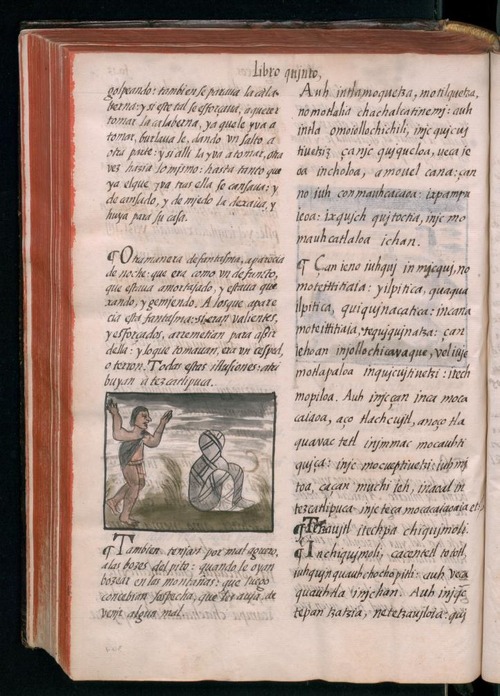 Libro quinto,
golpeando: tambien se paraua la cala-
berna: y si este tal se esforçaua, a querer
tomar la calaberna, ya que le yva a
tomar, burlaua le, dando vn salto a
otra parte: y si alli la yva a tomar, otra
vez hazia lo mismo: hasta tanto que
ya el que yva tras ella se cansaua: y
de cansado, y de miedo la dexaua, y
huya para su casa.
¶ Otra manera de fantasma, aparecia
de noche: que era como vn defuncto,
que estaua amortajado, y estaua que
xando, y gemiendo. A los que apare
cia esta fantasma: si eran valientes,
y esforçados, arremetian para asir
della: y lo que tomauan, era vn cesped,
o terron. Todas estas illusiones: atri
buyan a tezcatlipuca.
¶ Tambien tenian por mal aguero,
a las bozes del pito: quando le oyan
bozear en las montañas: que luego
concebian sospecha, que les auia, de
venir algun mal.
Auh intla moquetza, motilquetza,
no motlalia chachalcatinemi: auh
intla omoiollochichili, injc quicuj
tiuetziz çan jc quiqueloa, veca ie
oa incholoa, a mouel cana: çan
no iuh conmauhcacaoa: ixpampa
ieoa: ixqujch qujtoctia, injc mo
mauhcatlaloa ichan.
¶ Çan ieno iuhquj in mjcquj, no
moteittitiaia: yilpitica, quaqua
ilpitica, quiquinacatica: incana
moteittitiaia, tequjqujnatza: çan
iehoan injollochicavaque, vel iuje
motlapaloa inqujcujtiuetzi: itech
mopiloa. Auh injc çan inca moca
caiaoa, aço tlachcujtl, anoço tla
quavac tetl injmmac mocauhti
qujça: injc mocueptiuetzi: iuh mj
toa, ca çan muchi ieh, inaoal in
tezcatlipuca injc teca mocacaiaoaia et.
¶ Tetzaujtl itechpa chiqujmoli.
¶ In chiqujmoli, ca centetl tototl,
iuhqujn quauhchochopitli: auh veca
quauhtla injchan. Auh injquac
tepan tzatzia, netetzaujloia: quj